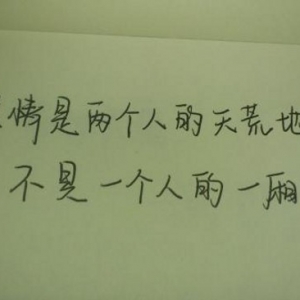 情是两个人的天荒地
不是一个人的一厢